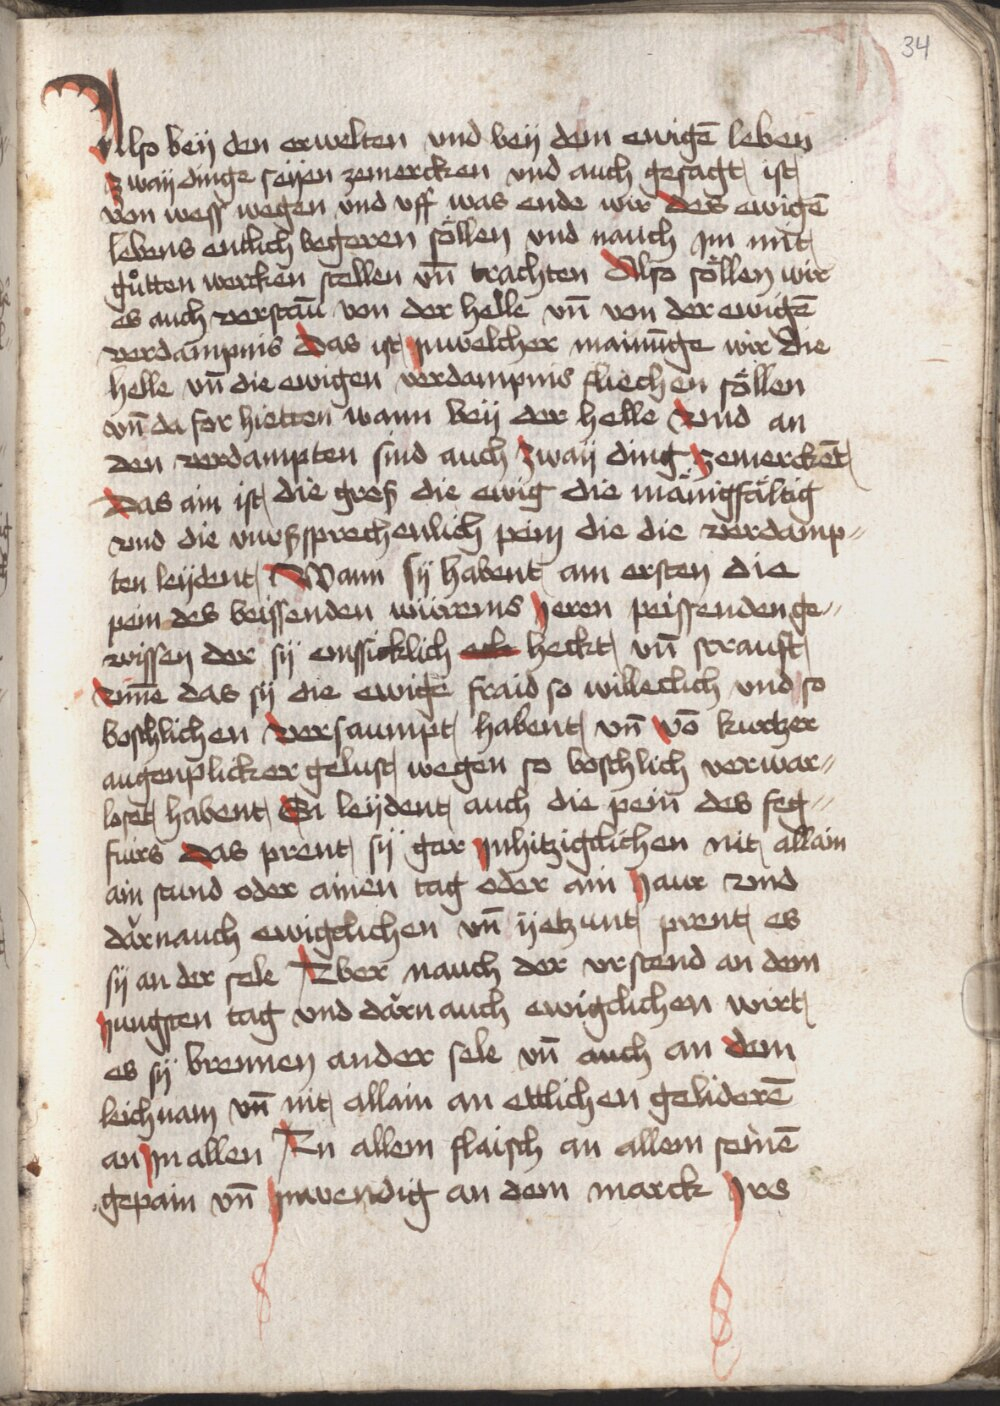 34
Also beÿ den erwelten vnd beÿ dem ewigē leben
zwaÿ dinge seÿen zemercken vnd auch gesagt ist
von wess wegen vnd vff was ende wir des ewigē
lebens entlich begeren söllen vnd nauch jm mit
gůtten wercken stellen vn̄ trachten Also söllen wir
es auch verstān von der helle vn̄ von der ewigē
verdampnis das ist jnwelcher mainūge wir die
helle vn̄ die ewigen verdampnis fliechen söllen
vn̄ da for hietten wann beÿ der helle Vnd an
den verdampten sind auch zwaÿ ding zemerckēt
das ain ist die groß die ewig die mänigfältig
vnd die vnußsprechenlich pein die die verdamp-
ten leÿdent Wann sÿ habent am ersten die
pein des beissenden würems jeren peissenden ge-
wissen der sÿ emssicklich heckt vn̄ strauft
vm̄e das sÿ die ewige fraid so willeclich vnd so
boschlichen versaumpt habent vn̄ vō kurtzer
augenplicker gelust wegen so boschlich verwar-
loset habent Si leÿdent auch die pein des feg-
fuirs das prent sÿ gar jnhitzigclichen nit allain
ain stund oder ainen tag oder ain jaur vnd
därnauch ewigclichen vn̄ ÿetzunt prent es
sÿ an der sele Aber nauch der vrstend an dem
jungsten tag vnd därnauch ewigclichen wirt
es sÿ brennen an der sele vn̄ auch an dem
leichnam vn̄ nit allain an ettlichen gliderē
an jn allen An allem flaisch an allem seinē
gepain vn̄ jnwendig an dem marck jrs